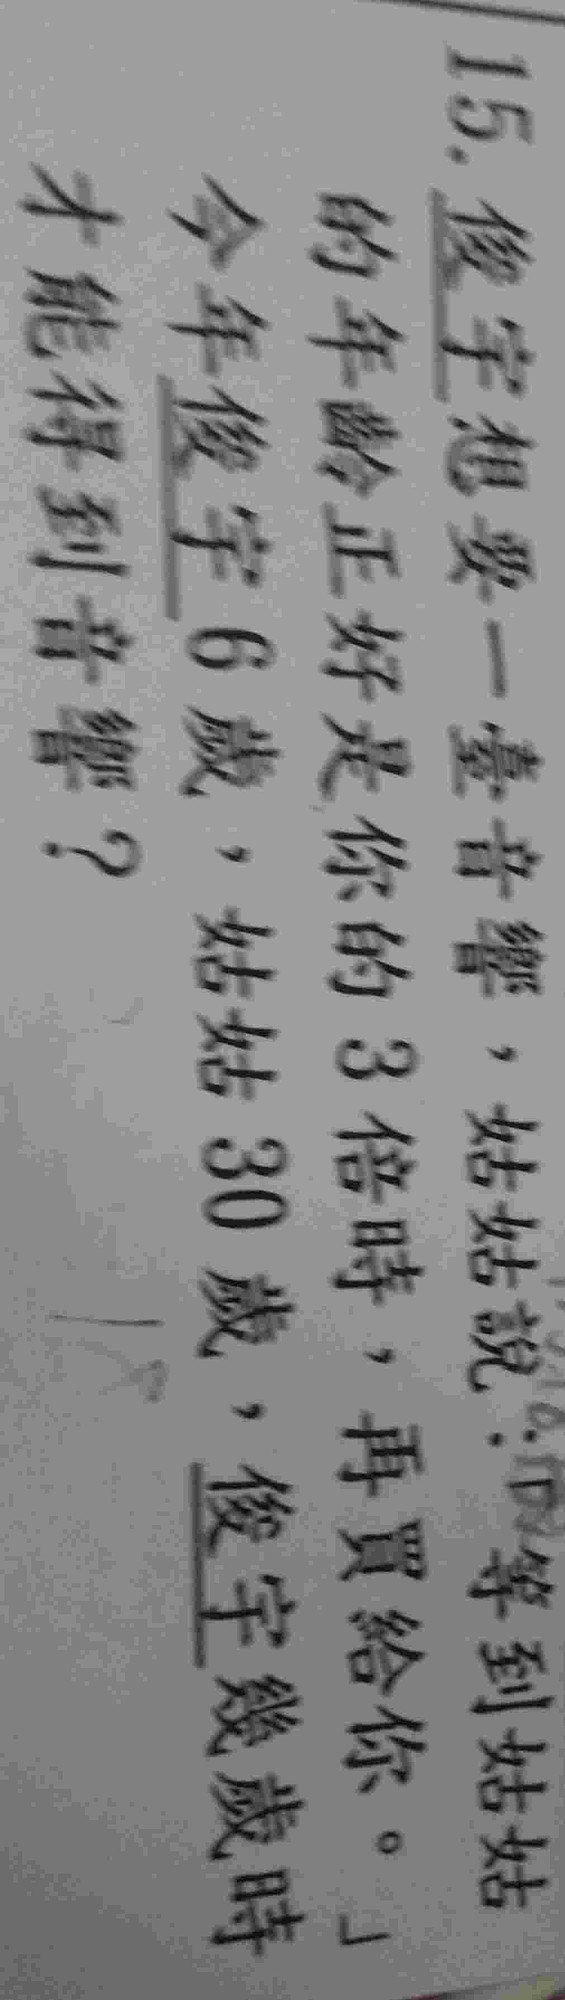 15. 俊宇想要一臺音響，姑姑說：「等到姑姑
的年齡正好是你的3倍時，再買給你。」
今年俊宇6歲，姑姑30歲，俊宇幾歲時
才能得到音響？